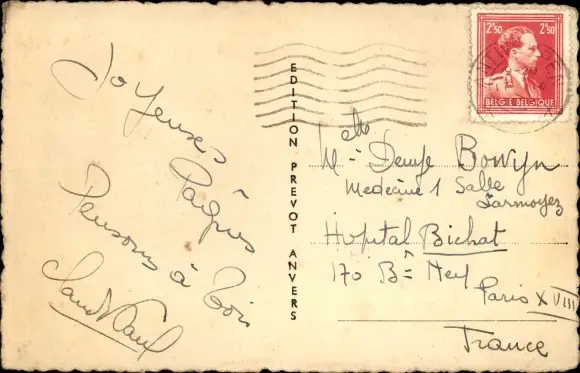 Joyeuses
Pâques
Pensons à toi
EDITION PREVOT ANVERS
2F50 2F50
BELGIE BELGIQUE
Melle Denyse Bowyn
Medecine 1 Salle
Larmoyez
Hopital Bichat
170 Bd Ney
Paris XVIII
France